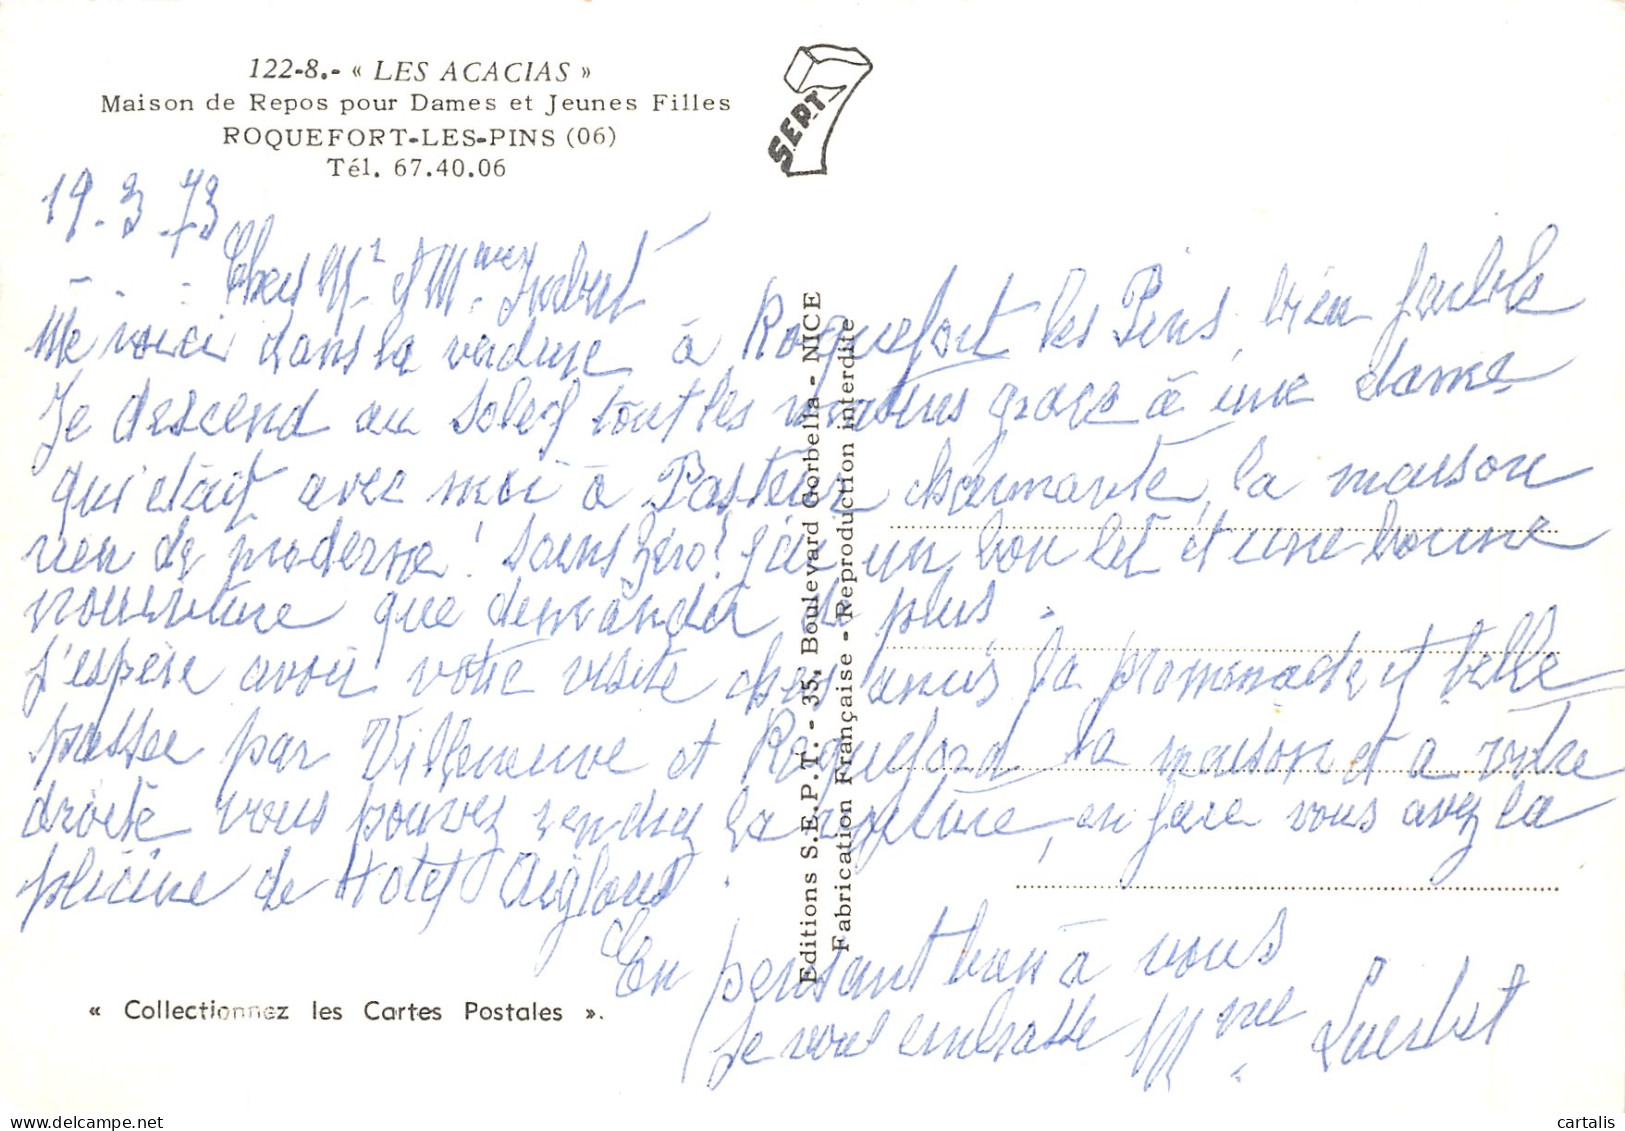 122-8.- « LES ACACIAS »
Maison de Repos pour Dames et Jeunes Filles
ROQUEFORT-LES-PINS (06)
Tél. 67.40.06
SEPT 7
19.3.73
Chers Mr et Mme
Me voici dans la verdure à Roquefort les Pins, bien faible
Je descend au soleil tout les matins grace à une dame
qui était avec moi à Pasteur charmante, la maison
rien de moderne! sans zéro! j'ai un bon lit et une bonne
nourriture que demander de plus.
J'espère avoir votre visite chers amis la promenade et belle
passer par Villeneuve et Roqueford la maison et a votre
droite vous pouvez rendre la en face vous avez la
piicine de Hotel
En pensant bien à vous
je vous embrasse Mme
Editions S.E.P.T. - 35, Boulevard Gorbella - NICE
Fabrication Française - Reproduction interdite
« Collectionnez les Cartes Postales ».
cartalis